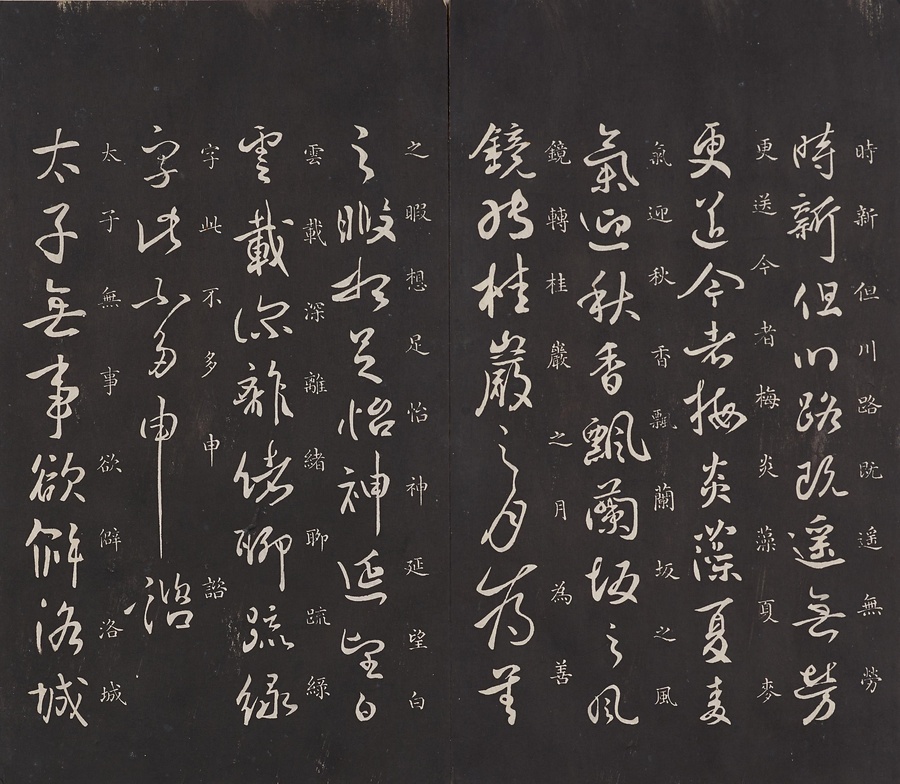 時新但川路既遥無勞
時新但川路既遥無勞
更送今者梅炎藻夏麥
更送今者梅炎藻夏麥
氣迎秋香飄蘭坂之風
氣迎秋香飄蘭坂之風
鏡轉桂巖之月為善
鏡轉桂巖之月為善
之暇想足怡神延望白
之暇想足怡神延望白
雲載深離緒聊疏緑
雲載深離緒聊疏緑
字此不多申 諮
字此不多申 諮
太子無事欲僻洛城
太子無事欲僻洛城